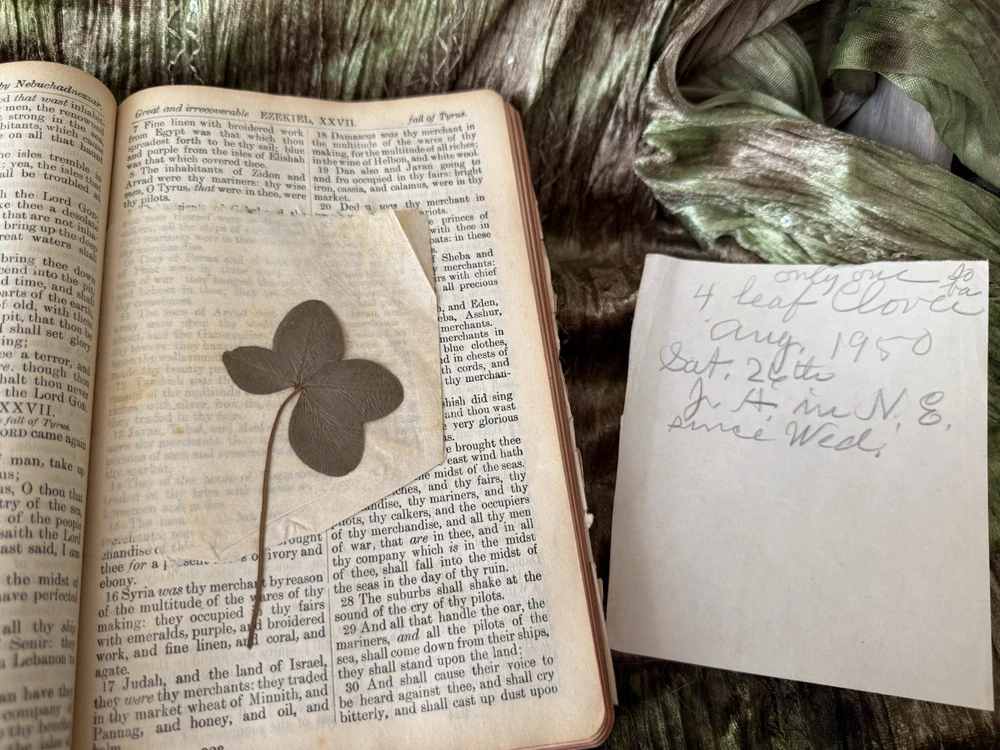 by Nebuchadnezzar.
ed that wast inhabit-
men, the renowned
strong in the
bitants, which cause
on all that haunt
he isles tremble in
yea, the isles that
all be troubled at
h the Lord God;
ke thee a desolate
that are not inha-
bring up the deep
reat waters shall
bring thee down
cend into the pit
d time, and shall
parts of the earth
of old, with them
pit, that thou be
I shall set glory
ing;
ee a terror, and
re. though thou
halt thou never
the Lord GOD.
XXVII.
fall of Tyrus.
ORD came again
f man, take up
us;
us, O thou that
try of the sea,
of the people
saith the Lord
ast said, I am
the midst of
have perfected
all thy ship
Senir: they
Lebanon to
an have the
company
Great and irrecoverable EZEKIEL, XXVII. fall of Tyrus.
7 Fine linen with broidered work
from Egypt was that which thou
spreadest forth to be thy sail; blue
and purple from the isles of Elishah
was that which covered thee.
8 The inhabitants of Zidon and
Arvad were thy mariners: thy wise
men, O Tyrus, that were in thee, were
thy pilots.
thee for a present of ivory and
ebony.
16 Syria was thy merchant by reason
of the multitude of the wares of thy
making: they occupied in thy fairs
with emeralds, purple, and broidered
work, and fine linen, and coral, and
agate.
17 Judah, and the land of Israel,
they were thy merchants: they traded
in thy market wheat of Minnith, and
Pannag, and honey, and oil, and
18 Damascus was thy merchant in
the multitude of the wares of thy
making, for the multitude of all riches;
in the wine of Helbon, and white wool.
19 Dan also and Javan going to
and fro occupied in thy fairs: bright
iron, cassia, and calamus, were in thy
market.
20 Dedan was thy merchant in
princes of
with thee in
oats: in these
Sheba and
merchants:
rs with chief
all precious
h, and Eden,
eba, Asshur,
merchants.
merchants in
blue clothes,
d in chests of
th cords, and
thy merchan-
hish did sing
and thou wast
very glorious
as.
brought thee
east wind hath
midst of the seas.
ches, and thy fairs, thy
andise, thy mariners, and thy
pilots, thy calkers, and the occupiers
of thy merchandise, and all thy men
of war, that are in thee, and in all
thy company which is in the midst
of thee, shall fall into the midst of
the seas in the day of thy ruin.
28 The suburbs shall shake at the
sound of the cry of thy pilots.
29 And all that handle the oar, the
mariners, and all the pilots of the
sea, shall come down from their ships,
they shall stand upon the land;
30 And shall cause their voice to
be heard against thee, and shall cry
bitterly, and shall cast up dust upon
only one
4 leaf Clover
Aug, 1950
Sat. 26th
J. A. in N. E.
since Wed.